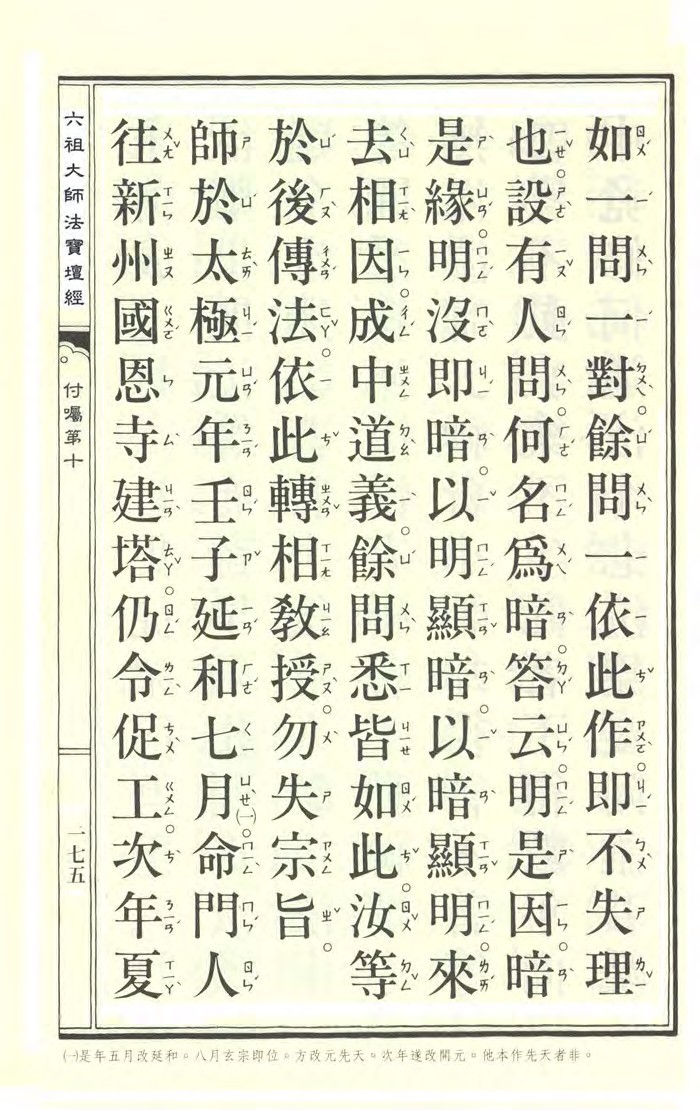 如一問一對。餘問一依此作。即不失理
也。設有人問。何名爲暗。答云。明是因。暗
是緣。明沒即暗。以明顯暗。以暗顯明。來
去相因。成中道義。餘問悉皆如此。汝等
於後傳法。依此轉相教授。勿失宗旨。
師於太極元年壬子延和七月㈠。命門人
往新州國恩寺建塔。仍令促工。次年夏
六祖大師法寶壇經
付囑第十
一七五
㈠是年五月改延和。八月玄宗即位。方改元先天。次年遂改開元。他本作先天者非。